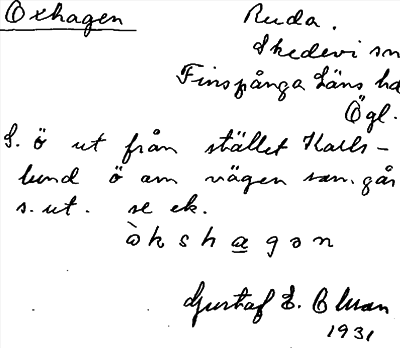 Oxhagen
Ruda.
Skedevi sn
Finspånga Läns hd
Ögl.
S. ö ut från stället Karls-
lund ö om vägen som går
s. ut. se ek.
òkshagon
Gustaf E. Olsson
1931